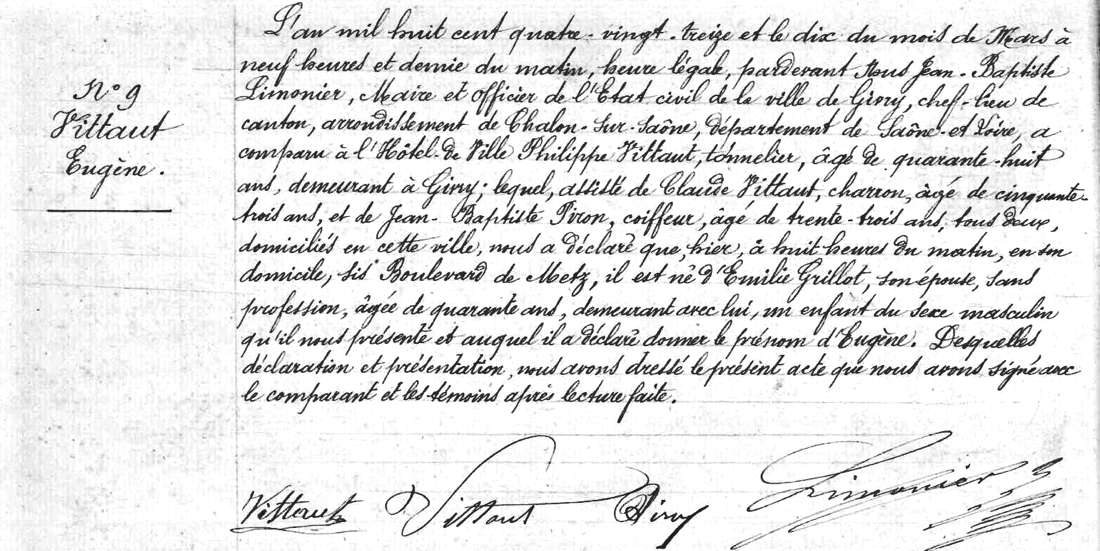 N° 9
Vittaut
Eugène.
L'an mil huit cent quatre-vingt-treize et le dix du mois de Mars à
neuf heures et demie du matin, heure légale, pardevant Nous Jean-Baptiste
Limonier, Maire et officier de l'Etat civil de la ville de Givry, chef-lieu de
canton, arrondissement de Chalon-sur-Saône, département de Saône-et-Loire, a
comparu à l'Hôtel-de-Ville Philippe Vittaut, tonnelier, âgé de quarante-huit
ans, demeurant à Givry; lequel, assisté de Claude Vittaut, charron, âgé de cinquante-
trois ans, et de Jean-Baptiste Piron, coiffeur, âgé de trente-trois ans, tous deux,
domiciliés en cette ville, nous a déclaré que, hier, à huit heures du matin, en son
domicile, sis Boulevard de Metz, il est né d'Emilie Grillot, son épouse, sans
profession, âgée de quarante ans, demeurant avec lui, un enfant du sexe masculin
qu'il nous présente et auquel il a déclaré donner le prénom d'Eugène. Desquelles
déclaration et présentation, nous avons dressé le présent acte que nous avons signé avec
le comparant et les témoins après lecture faite.
Vittaut Vittaut Piron Limonier